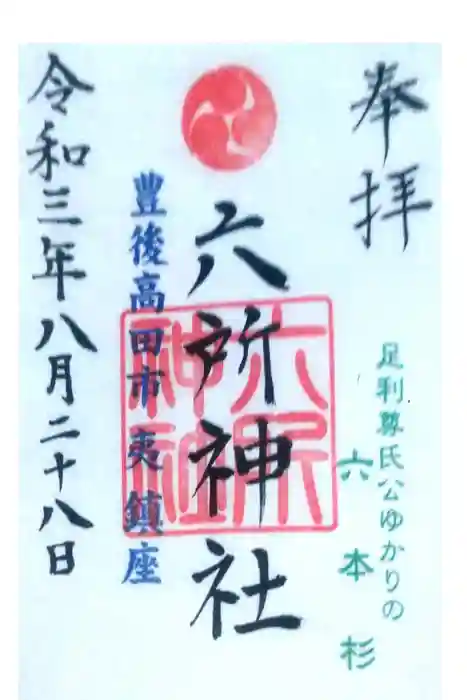 奉拝
足利尊氏公ゆかりの
六本杉
六所神社
六所
神社
豊後高田市夷鎮座
令和三年八月二十八日